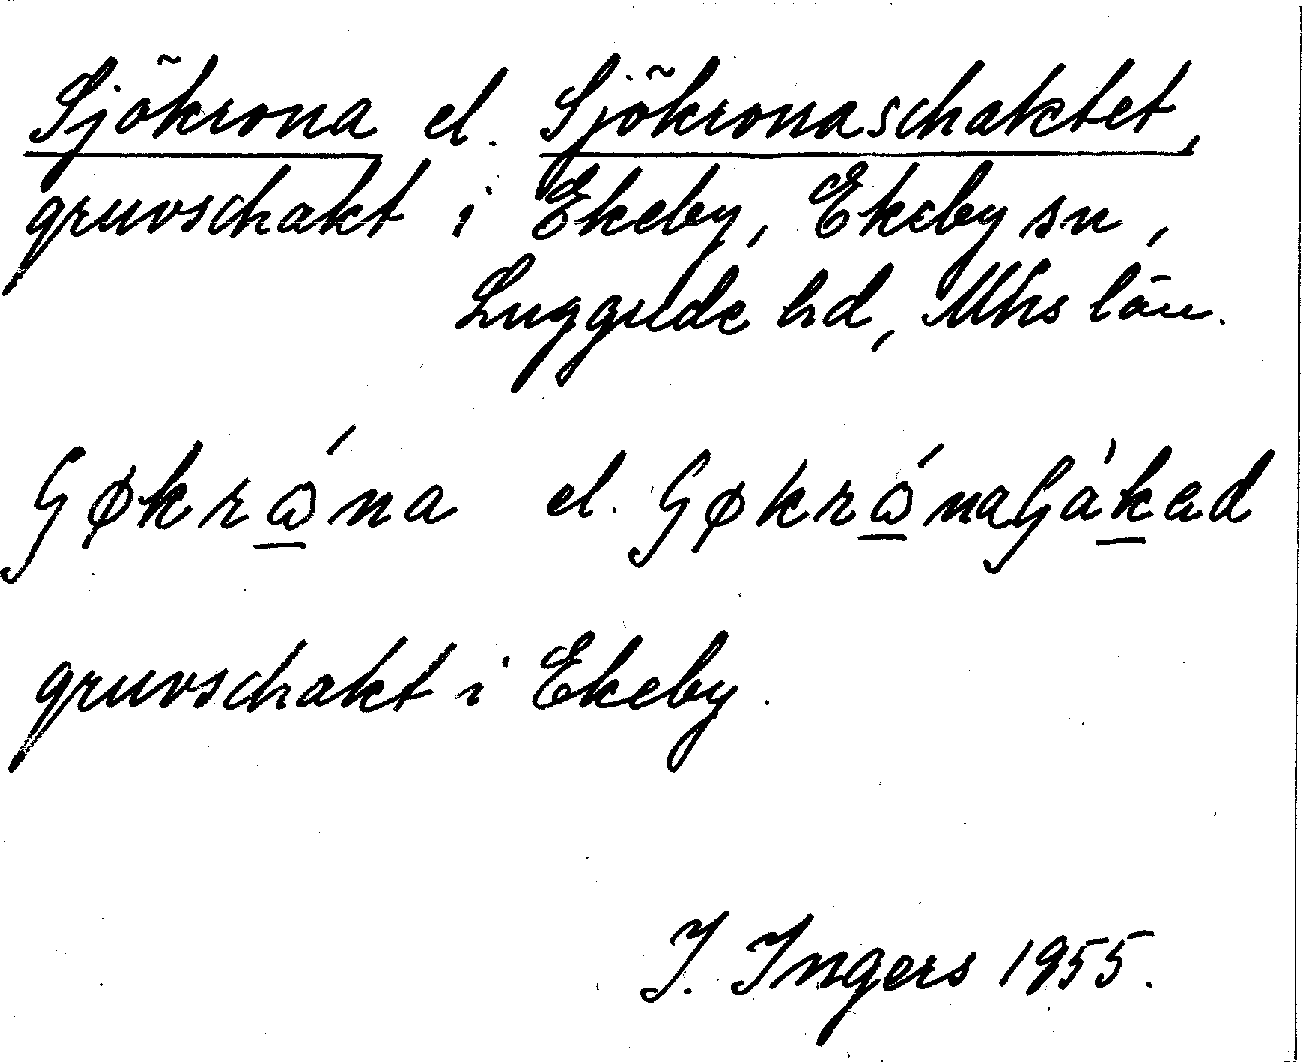 Sjökrona el. Sjökronaschaktet,
gruvschakt i Ekeby, Ekeby sn,
Luggude hd, Mhs län.
ʃøkrώna el. ʃøkrώnaʃàkad
gruvschakt i Ekeby.
I. Ingers 1955.